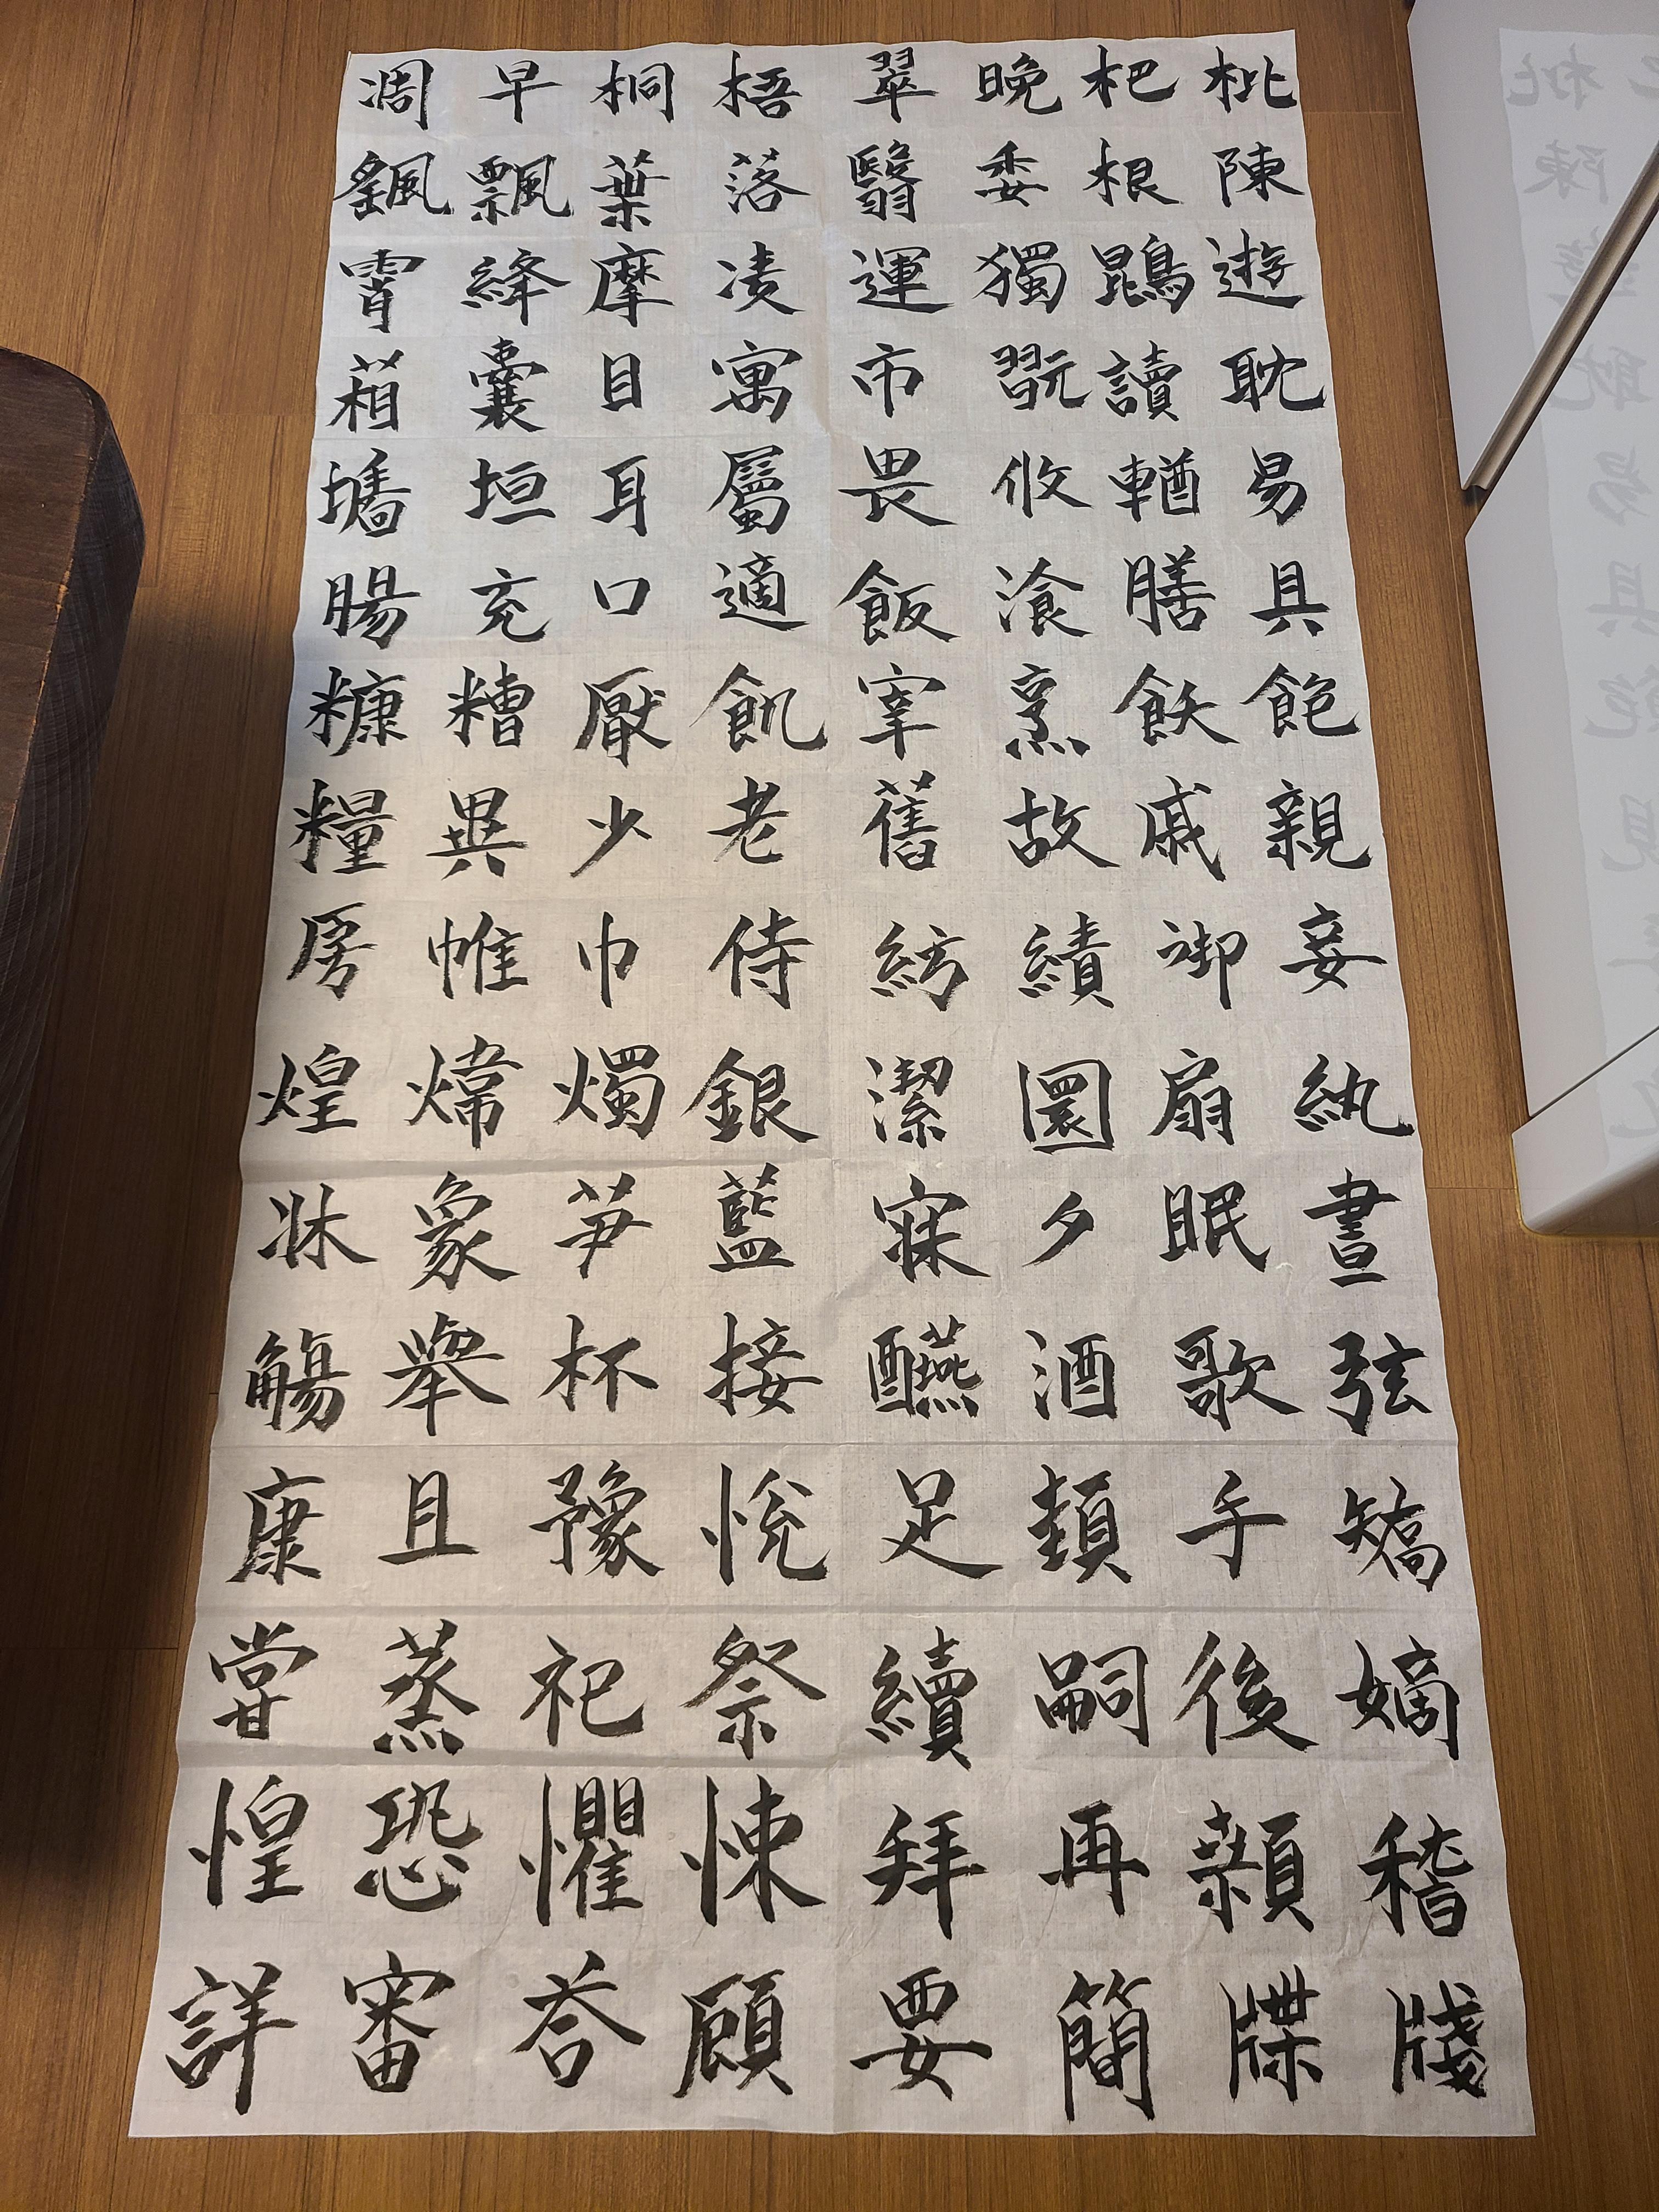 枇杷晚翠梧桐早凋
陳根委翳落葉飄颻
遊鵾獨運凌摩絳霄
耽讀翫市寓目囊葙
易輶攸畏屬耳垣墻
具膳飡飯適口充腸
飽飫烹宰飢厭糟糠
親戚故舊老少異糧
妾御績紡侍巾帷房
紈扇圜潔銀燭煒煌
晝眠夕寐藍笋象牀
弦歌酒醼接杯舉觴
矯手頓足悅豫且康
嫡後嗣續祭祀蒸嘗
稽顙再拜悚懼恐惶
牋牒簡要顧荅審詳